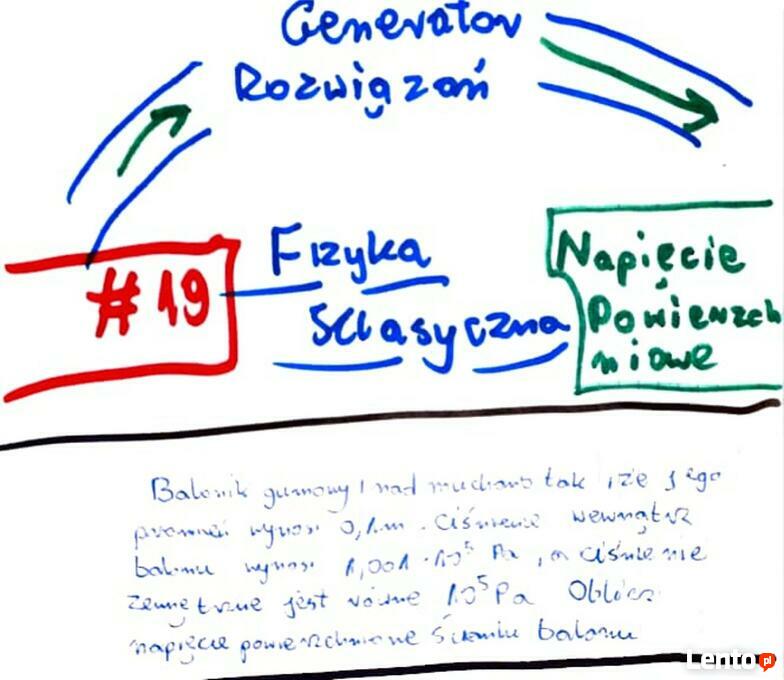 Generator
Rozwiązań
#19
Fizyka
Sclasyczna
Napięcie
Powierzch
niowe
Balonik gumowy nadmuchano tak, że jego
promień wynosi 0,1m. Ciśnienie wewnątrz
balonu wynosi 1,001·10⁵ Pa, a ciśnienie
zewnętrzne jest równe 10⁵Pa Oblicz
napięcie powierzchniowe ścianki balonu
Lento.pl